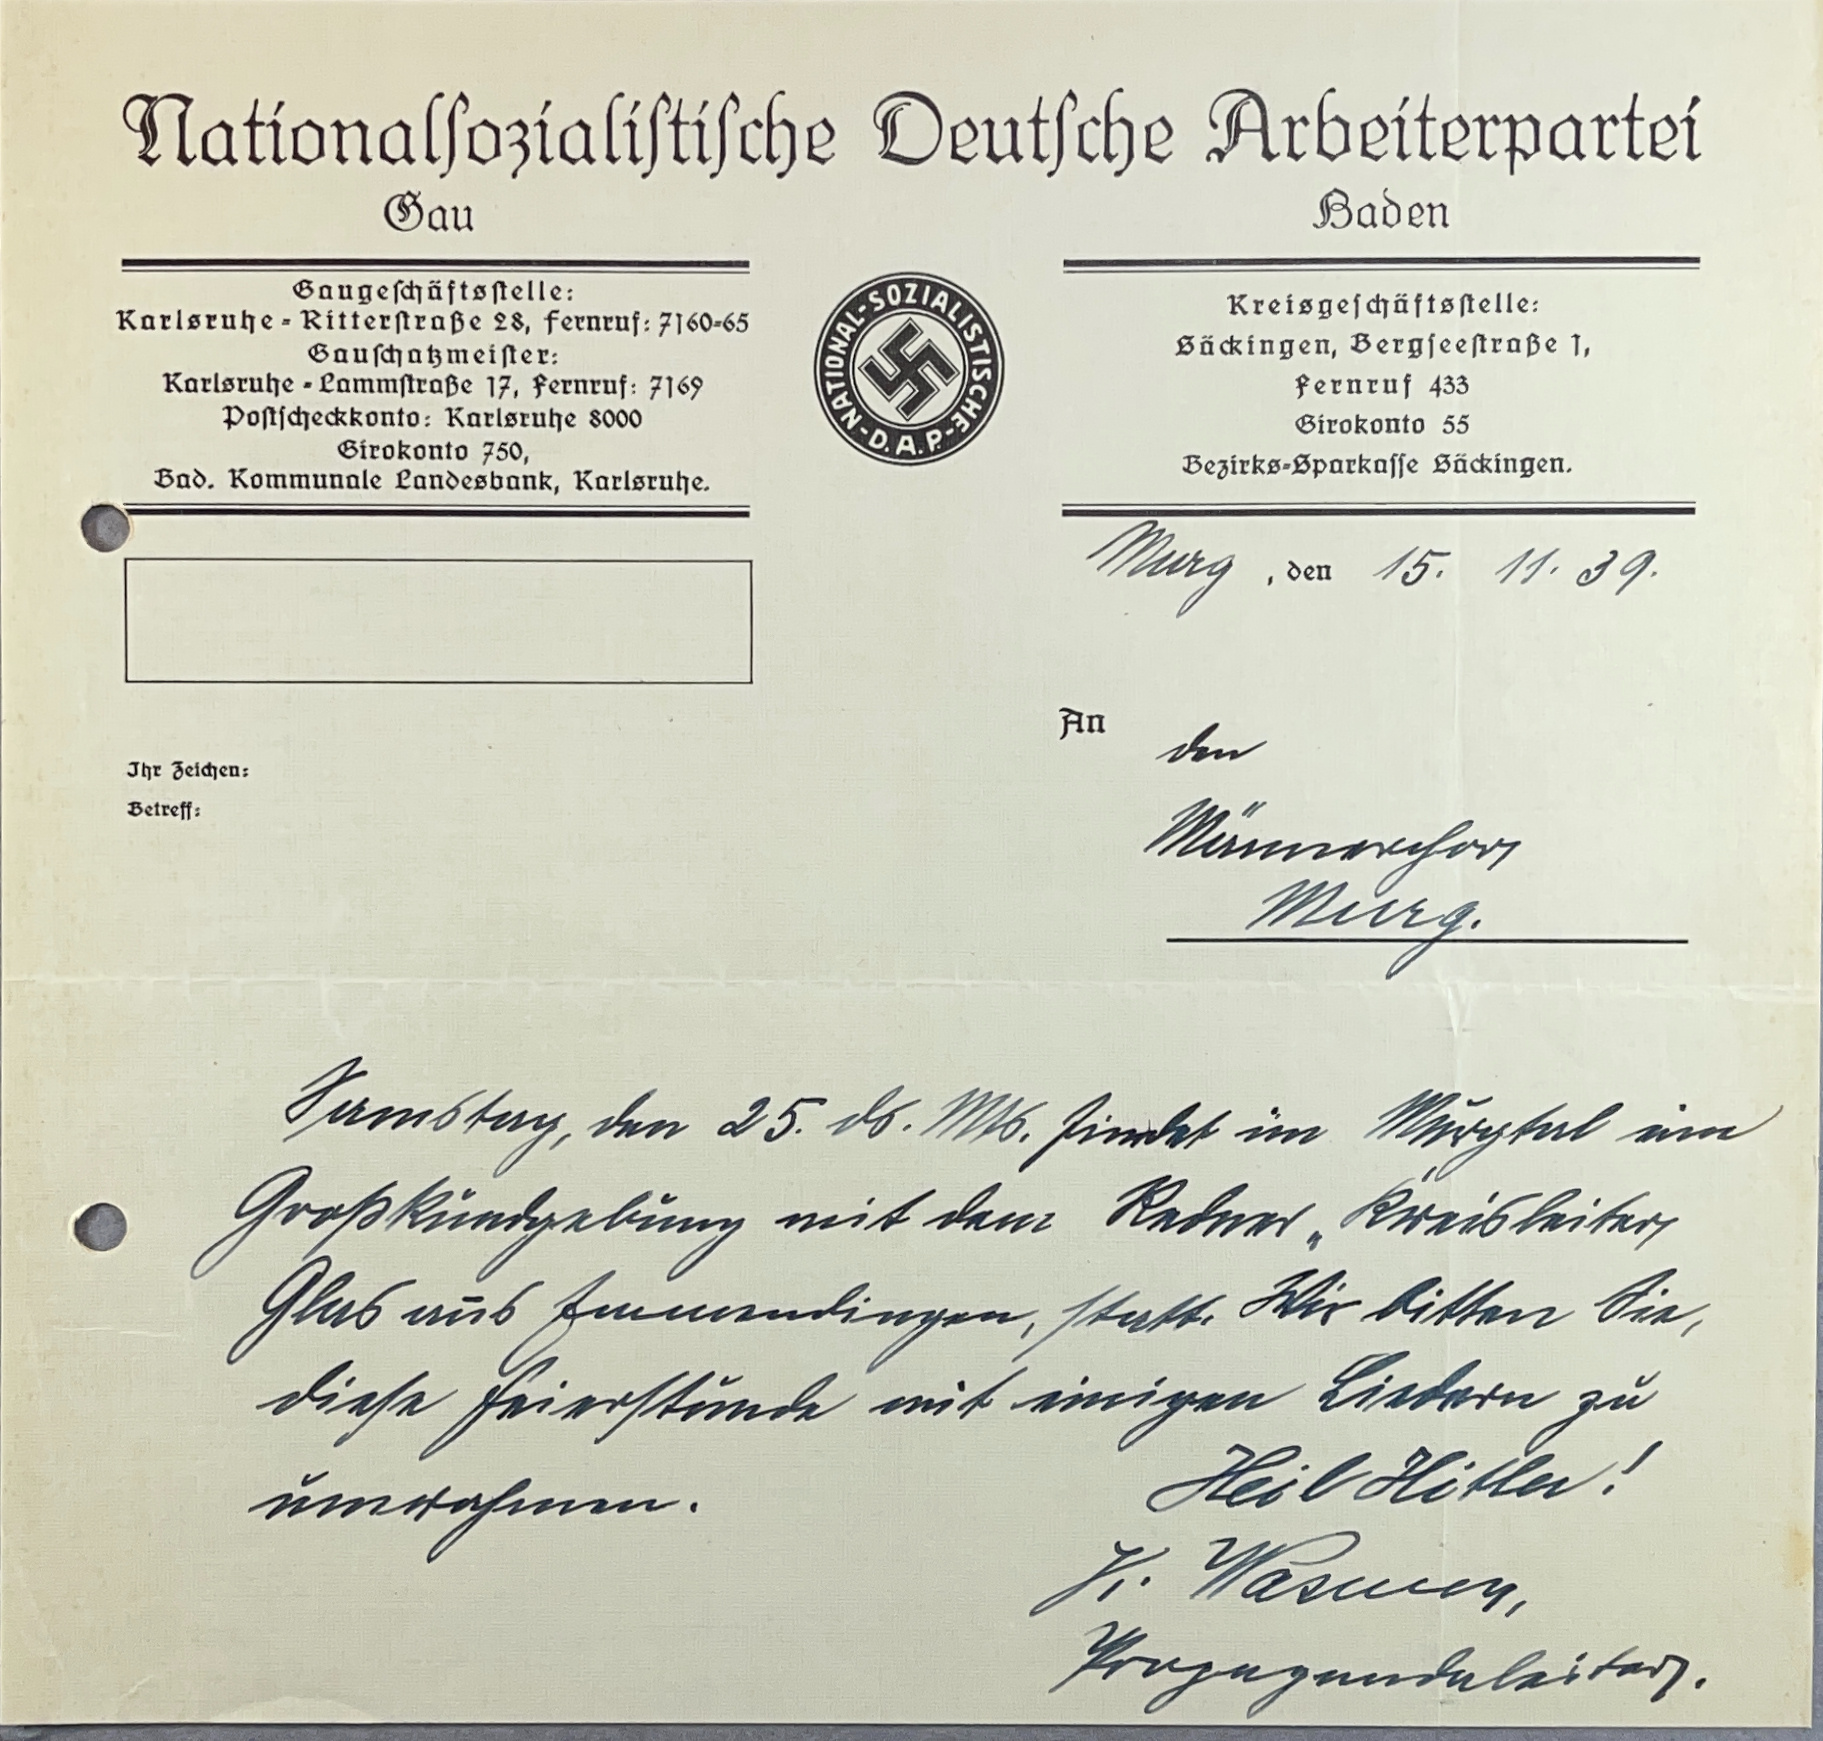 Nationalsozialistische Deutsche Arbeiterpartei
Gau Baden
Gaugeschäftsstelle:
Karlsruhe - Ritterstraße 28, Fernruf: 7160-65
Gauschatzmeister:
Karlsruhe - Lammstraße 17, Fernruf: 7169
Postscheckkonto: Karlsruhe 8000
Girokonto 750,
Bad. Kommunale Landesbank, Karlsruhe.
NATIONAL-SOZIALISTISCHE-D.A.P.-
Kreisgeschäftsstelle:
Säckingen, Bergseestraße 1,
Fernruf 433
Girokonto 55
Bezirks-Sparkasse Säckingen.
Murg, den 15. 11. 39.
An den
Männerchor
Murg.
Ihr Zeichen:
Betreff:
Samstag, den 25. ds. Mts. findet im Murgtal eine
Großkundgebung mit dem Redner „Kreisleiter
Glas aus Emmendingen, statt. Wir bitten Sie,
diese Feierstunde mit einigen Liedern zu
umrahmen.
Heil Hitler!
Propagandaleiter.